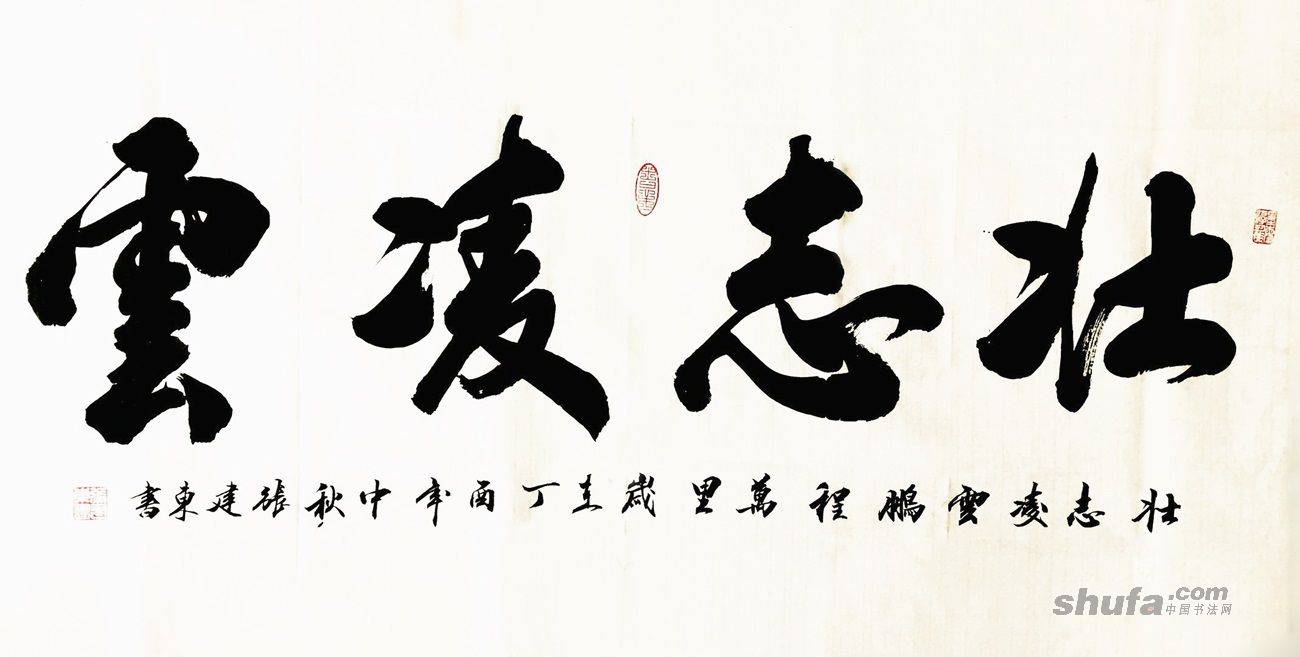 壮志凌雲
壮志凌雲鵬程萬里歲在丁酉年中秋張建東書
shufa.com
中国书法网